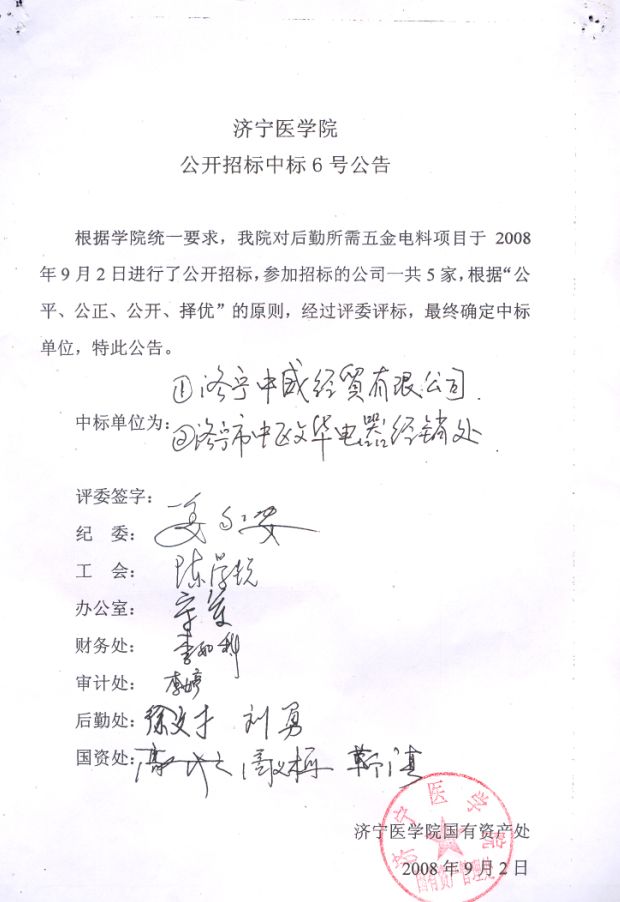 济宁医学院
公开招标中标6号公告
根据学院统一要求，我院对后勤所需五金电料项目于 2008
年9月2日进行了公开招标，参加招标的公司一共5家，根据“公
平、公正、公开、择优”的原则，经过评委评标，最终确定中标
单位，特此公告。
①济宁中威经贸有限公司
中标单位为：
②济宁市中区华电器经销处
评委签字：
纪 委：
工 会：陈学
办公室：
财务处：李如科
审计处：李婷
后勤处：徐文才 刘勇
国资处：
济宁医学院国有资产处
2008年9月2日
济宁医学院
国有资产管理处